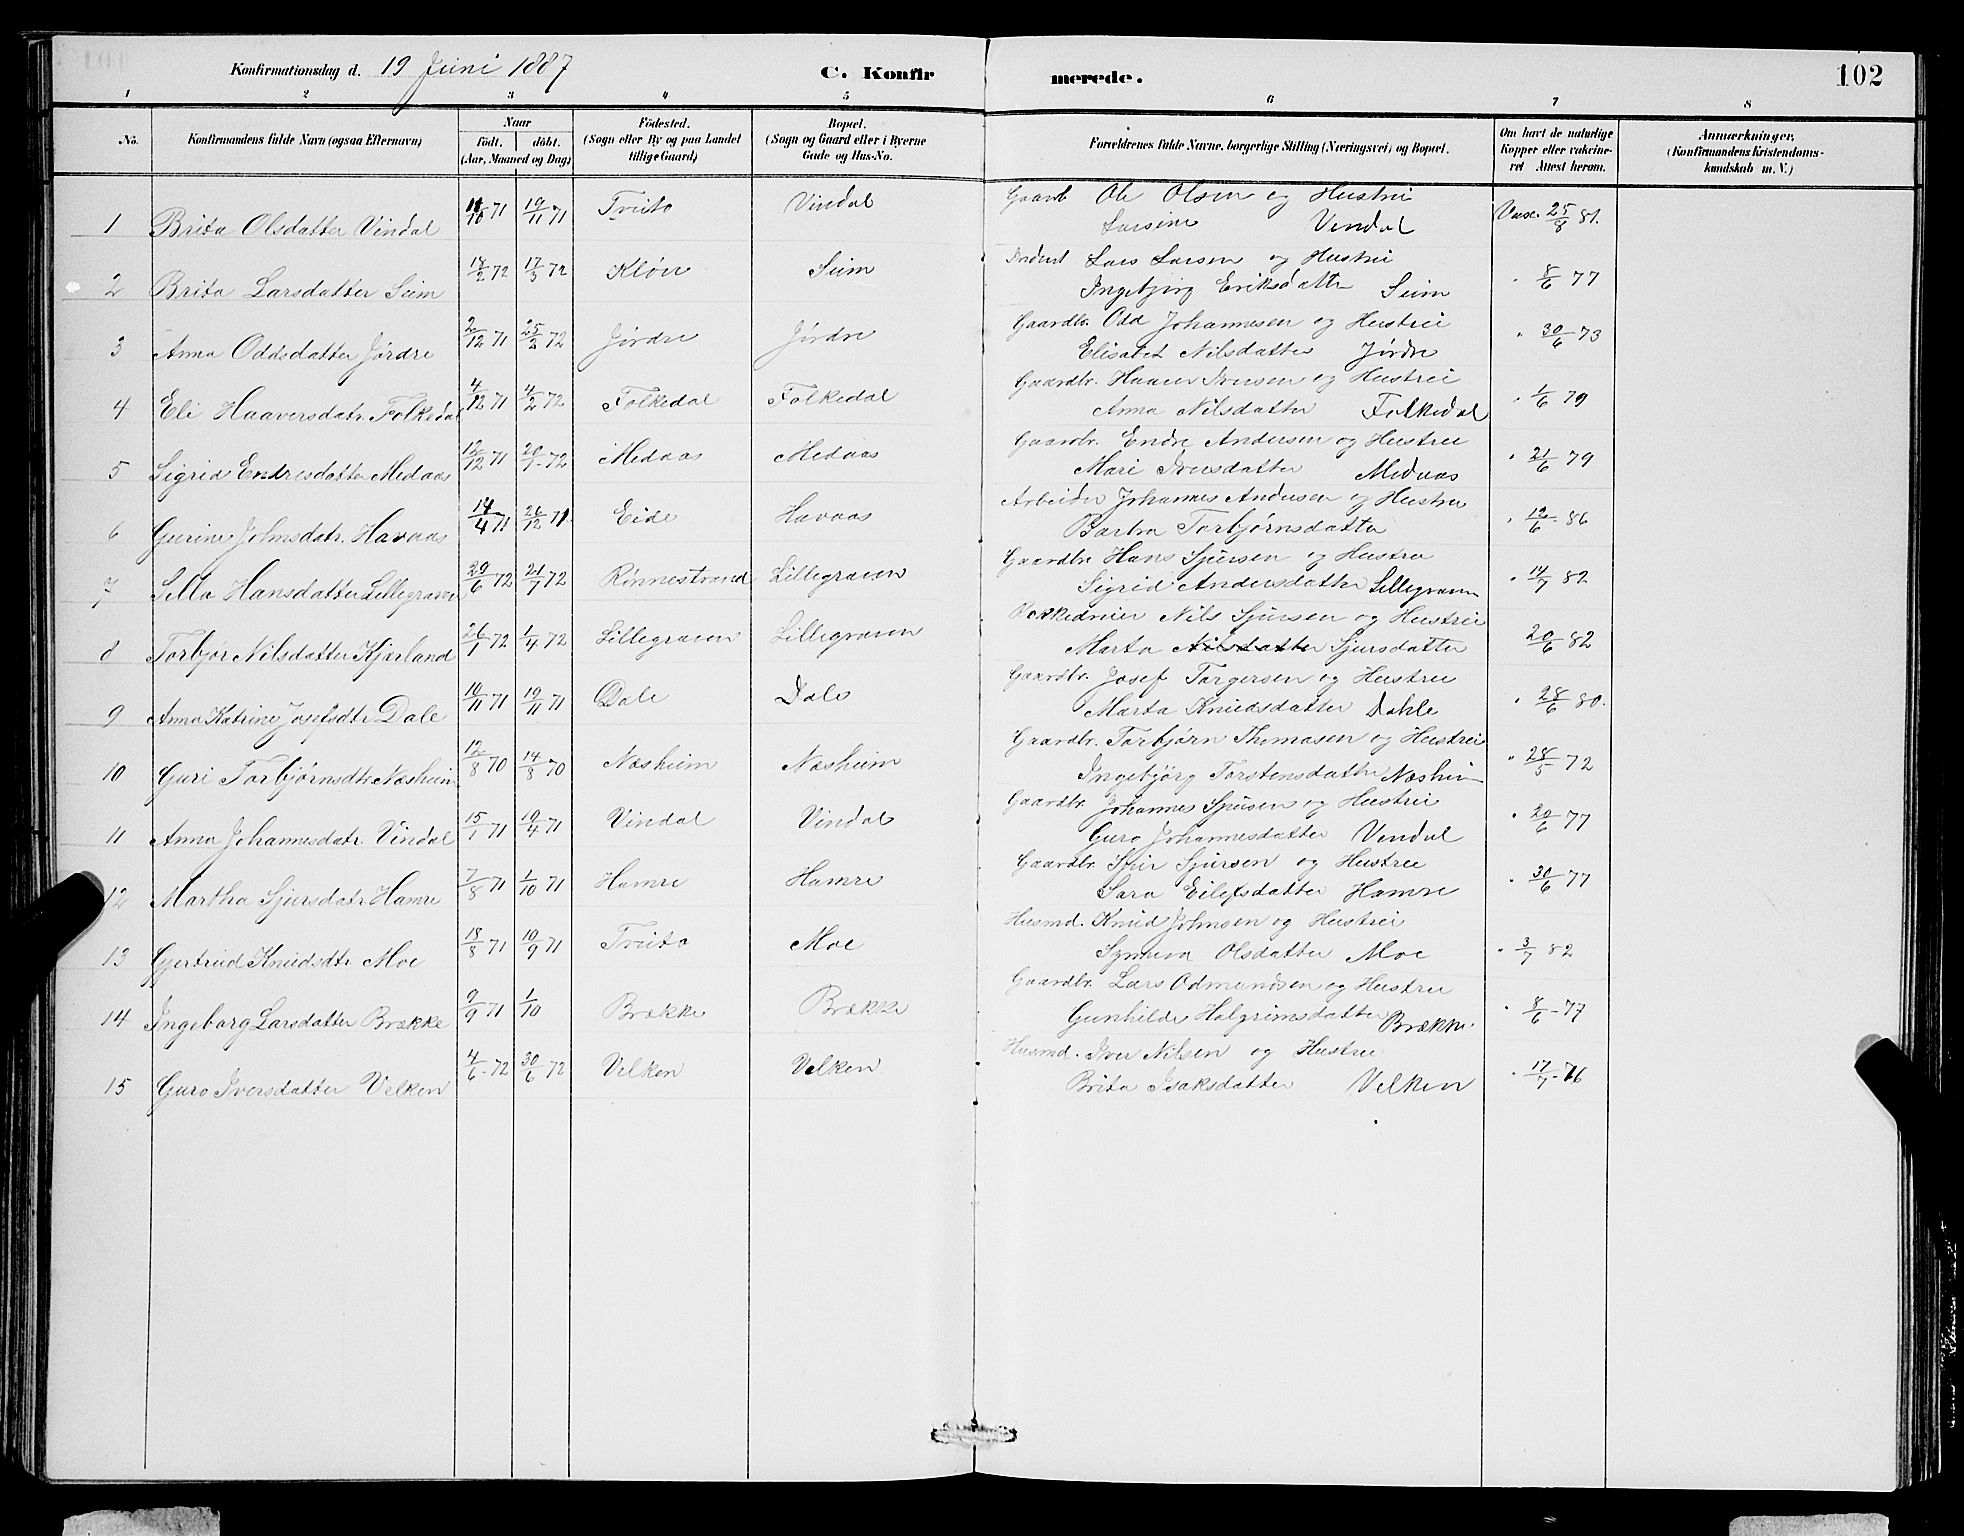 Konfirmationsdag d. 19 Juni 1887 C. Konfirmerede. 102
1 2 3 4 5 6 7 8
No. Konfirmandens fulde Navn (ogsaa Efternavn) Naar födt. döbt. (Aar, Maaned og Dag) Födested. (Sogn eller By og paa Landet tillige Gaard) Bopæl. (Sogn og Gaard eller i Byerne Gade og Hus-No. Forældrenes fulde Navne, borgerlige Stilling (Næringsvei) og Bopæl. Om havt de naturlige Kopper eller vakcineret Attest herom. Anmærkninger. (Konfirmandens Kristendomskundskab m. V.)
1 Brita Olsdatter Vindal 11/10 71 19/11 71 Tveito Vindal Gaardb Ole Olsen og Hustru Vacc. 25/8 81.
Larsine Vendal
2 Brita Larsdatter Seim 18/2 72 17/3 72 Kløn Seim Lars Larsen og Hustru " 8/6 77
Ingebjørg Eriksdatter Seim
3 Anna Oddsdatter Jørdre 2/12 71 25/2 72 Jørdre Jørdre Gaardbr. Odd Johannesen og Hustru " 30/6 73
Elisabet Nilsdatter Jørdre
4 Eli Haaversdatr. Folkedal 4/12 71 4/2 72 Folkedal Folkedal Gaardbr. Haaver Iversen og Hustru " 1/6 79
Anna Nilsdatter Folkedal
5 Sigrid Endresdatter Medaas 12/12 71 20/1 72 Medaas Medaas Gaardbr. Endre Andersen og Hustru " 21/6 79
Mari Iversdatter Medaas
6 Gurine Johnsdatr. Havaas 14/4 71 26/12 71. Eide Havaas Arbeider Johannes Andersen og Hustru " 12/6 86
Barbra Torbjørnsdatter
7 Silla Hansdatter Lillegraven 29/6 72 21/7 72 Rønnestrand Lillegraven Gaardbr Hans Sjursen og Hustru " 14/7 82
Sigrid Andersdatter Lillegraven
8 Torbjør Nilsdatter Kjærland 26/1 72 1/4 72 Lillegraven Lillegraven Nils Sjursen og Hustru 20/6 82
Marta Nilsdatter Sjursdatter
9 Anna Katrine Josefsdtr Dale 10/11 71 19/11 71 Dale Dale Gaardbr. Josef Torgersen og Hustru " 28/6 80.
Marta Knudsdatter Dahle
10 Guri Torbjørnsdtr Næsheim 12/8 70 14/8 70 Næsheim Næsheim Gaardbr. Torbjørn Thomasen og Hustru " 28/5 72
Ingebjörg Torstensdatter Næsheim
11 Anna Johannesdatr. Vindal 15/1 71 19/4 71 Vindal Vindal Gaardbr. Johannes Sjursen og Hustru " 20/6 77
Guro Johannesdatter Vendal
12 Martha Sjursdatr. Hamre 7/8 71 1/10 71 Hamre Hamre Gaardbr. Sjur Sjursen og Hustru " 30/6 77
Sara Eilefsdatter Hamre
13 Gjertrud Knudsdtr. Moe 18/8 71 10/9 71 Tveito Moe Husmd. Knud Johnsen og Hustru " 3/7 82
Synneva Olsdatter Moe
14 Ingeborg Larsdatter Brække 9/9 71 1/10 Brække Brække Gaardbr. Lars Odmundsen og Hustru " 8/6 - 77
Gunhilde Halgrimsdatter Brække.
15 Guro Iversdatter Velken 4/6 - 72 30/6 72 Velken Velken Husmd. Iver Nilsen og Hustru " 17/7 - 76
Brita Isaksdatter Velken